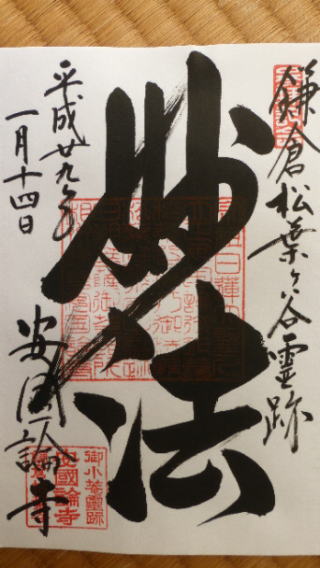 鎌倉松葉ヶ谷霊跡
妙法
平成廿九年
一月十四日
安国論寺
御小菴靈跡
安國論寺